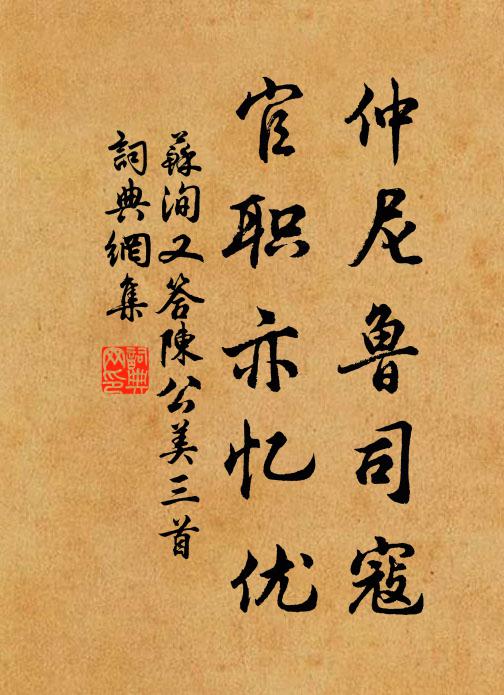 仲尼鲁司寇
官职亦忆优
蘇洵又答陳公美三首
詞典網集
詞典网印